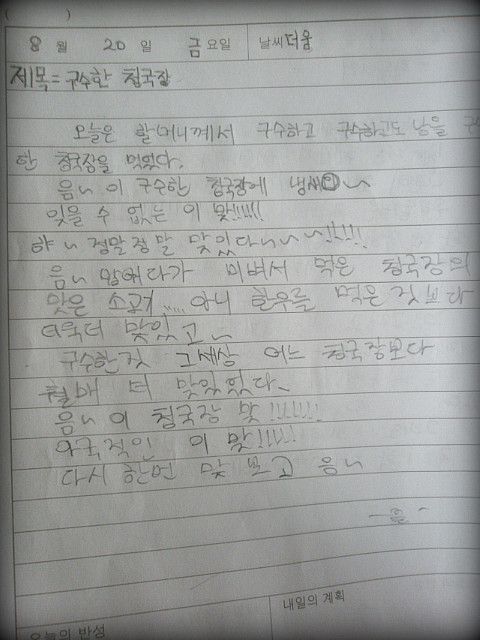 ( )
8 월 20 일 금 요일 날씨 더움
제목 = 구수한 청국장
오늘은 할머니께서 구수하고 구수하고도 남을 구
한 청국장을 먹었다.
음~ 이 구수한 청국장에 냄새~
잊을 수 없는 이 맛!!!!!!
햐~ 정말정말 맛있다~~~!!!!!
음~ 밥에다가 비벼서 먹은 청국장의
맛은 소고기..... 아니 한우를 먹은것보다
더욱더 맛있고~
구수한것 그세상 어느 청국장보다
훨배 더 맛있었다~
음~ 이 청국장 맛!!!!!!!
이 맛!!!!!
다시 한번 맛 보고 음~
오늘의 반성
내일의 계획